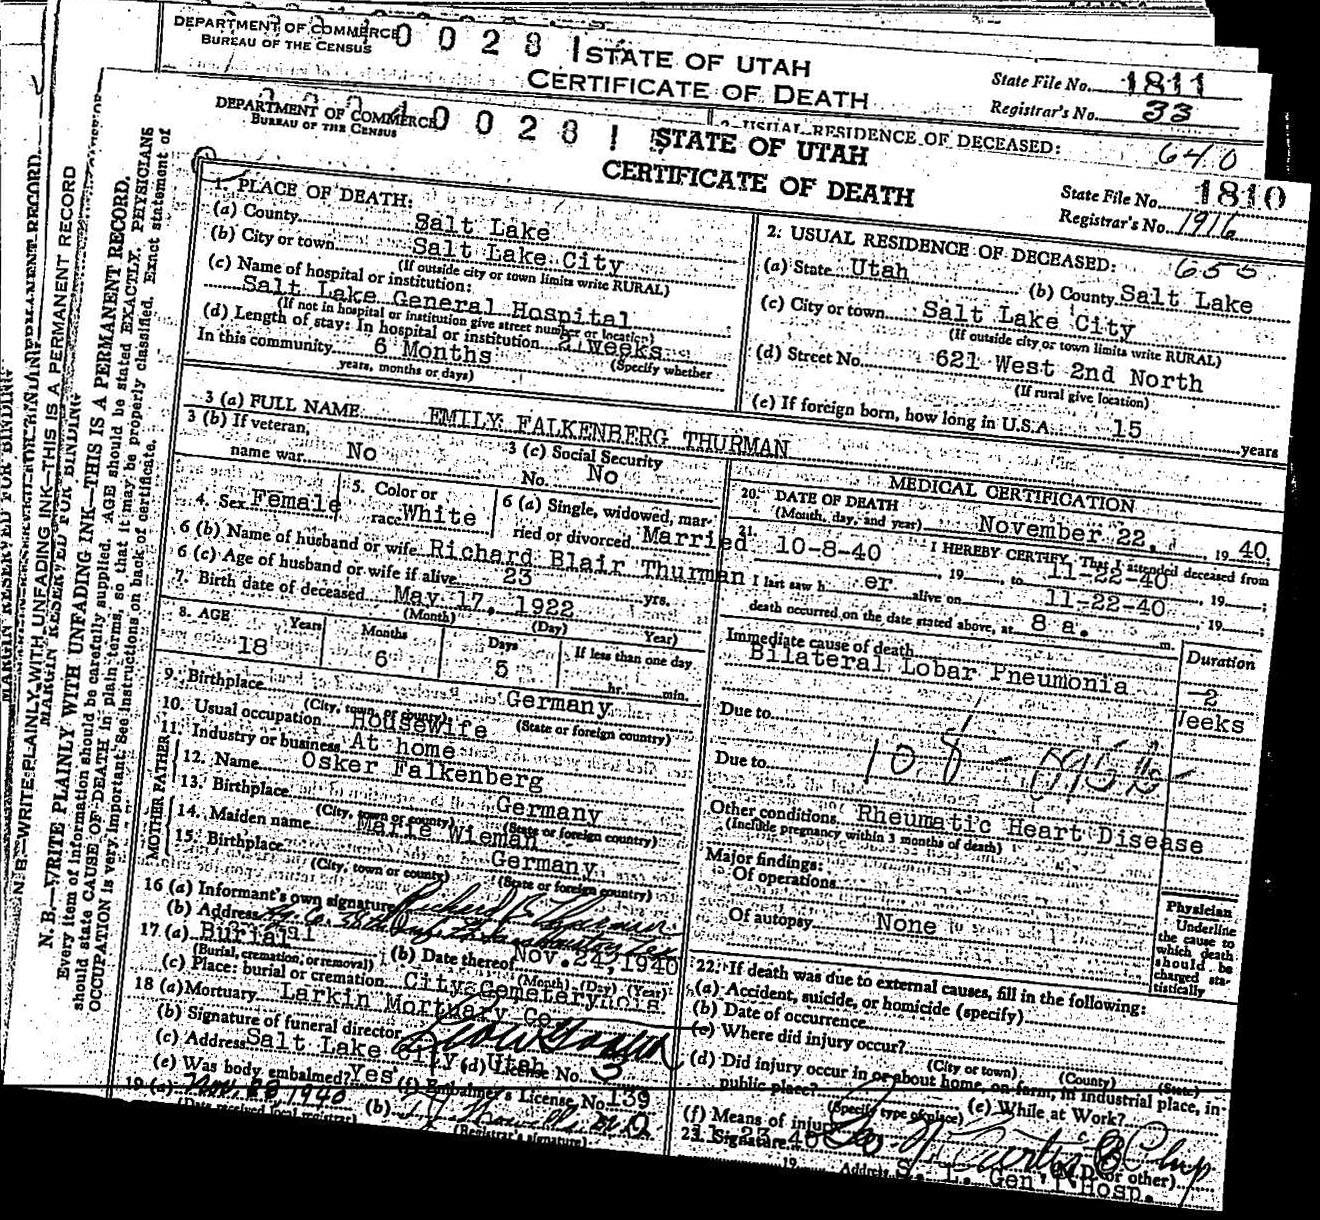 DEPARTMENT OF COMMERCE
BUREAU OF THE CENSUS
0 0 2 8 1
STATE OF UTAH
CERTIFICATE OF DEATH
State File No. 1811
Registrar's No. 33
2. USUAL RESIDENCE OF DECEASED:
640
DEPARTMENT OF COMMERCE
BUREAU OF THE CENSUS
0 0 2 8 1
STATE OF UTAH
CERTIFICATE OF DEATH
State File No. 1810
Registrar's No. 1916
655
MARGIN RESERVED FOR BINDING
N. B.—WRITE PLAINLY WITH UNFADING INK—THIS IS A PERMANENT RECORD
MARGIN RESERVED FOR BINDING
N. B.—WRITE PLAINLY WITH UNFADING INK—THIS IS A PERMANENT RECORD.
Every item of information should be carefully supplied. AGE should be stated EXACTLY. PHYSICIANS
should state CAUSE OF DEATH in plain terms, so that it may be properly classified. Exact statement of
OCCUPATION is very important. See instructions on back of certificate.
1. PLACE OF DEATH:
(a) County Salt Lake
(b) City or town Salt Lake City
(If outside city or town limits write RURAL)
(c) Name of hospital or institution:
Salt Lake General Hospital
(If not in hospital or institution give street number or location)
(d) Length of stay: In hospital or institution 2 weeks
(Specify whether
In this community 6 Months
years, months or days)
2. USUAL RESIDENCE OF DECEASED:
(a) State Utah (b) County Salt Lake
(c) City or town Salt Lake City
(If outside city or town limits write RURAL)
(d) Street No. 621 West 2nd North
(If rural give location)
(e) If foreign born, how long in U.S.A. 15 years
3 (a) FULL NAME EMILY FALKENBERG THURMAN
3 (b) If veteran,
name war No
3 (c) Social Security
No. No
4. Sex Female
5. Color or
race White
6 (a) Single, widowed, mar-
ried or divorced Married
6 (b) Name of husband or wife Richard Blair Thurman
6 (c) Age of husband or wife if alive 23 yrs.
7. Birth date of deceased May 17, 1922
(Month) (Day) Year)
8. AGE Years Months Days If less than one day
18 6 5 hr. min.
9. Birthplace Germany
(City, town, or county) (State or foreign country)
10. Usual occupation Housewife
11. Industry or business At home
FATHER
12. Name Osker Falkenberg
13. Birthplace Germany
(City, town or county) (State or foreign country)
MOTHER
14. Maiden name Marie Wieman
15. Birthplace Germany
(City, town or county) (State or foreign country)
16 (a) Informant's own signature Richard B. Thurman
(b) Address
17 (a) Burial (b) Date thereof Nov. 24, 1940
(Burial, cremation, or removal) (Month) (Day) (Year)
(c) Place: burial or cremation City Cemetery
18 (a) Mortuary Larkin Mortuary Co
(b) Signature of funeral director
(c) Address Salt Lake City, Utah (d) License No. 3
(e) Was body embalmed? Yes (f) Embalmer's License No. 139
19 (a) Nov. 23, 1940 (b)
(Date received local registrar) (Registrar's signature)
MEDICAL CERTIFICATION
20. DATE OF DEATH
(Month, day, and year) November 22, 19 40
21. I HEREBY CERTIFY, That I attended deceased from
10-8-40, 19 to 11-22-40, 19 ;
I last saw h er alive on 11-22-40, 19 ;
death occurred on the date stated above, at 8 a. m.
Immediate cause of death
Bilateral Lobar Pneumonia
Duration
2
Weeks
Due to
Due to
108
Other conditions Rheumatic Heart Disease
(Include pregnancy within 3 months of death)
Major findings:
Of operations
Of autopsy None
Physician
Underline
the cause to
which death
should be
charged sta-
tistically
22. If death was due to external causes, fill in the following:
(a) Accident, suicide, or homicide (specify)
(b) Date of occurrence
(c) Where did injury occur?
(City or town) (County) (State)
(d) Did injury occur in or about home, on farm, in industrial place, in
public place?
(Specify type of place) (e) While at Work?
(f) Means of injury
23. Signature
(M.D. or other)
19 Address S. L. Gen'l Hosp.